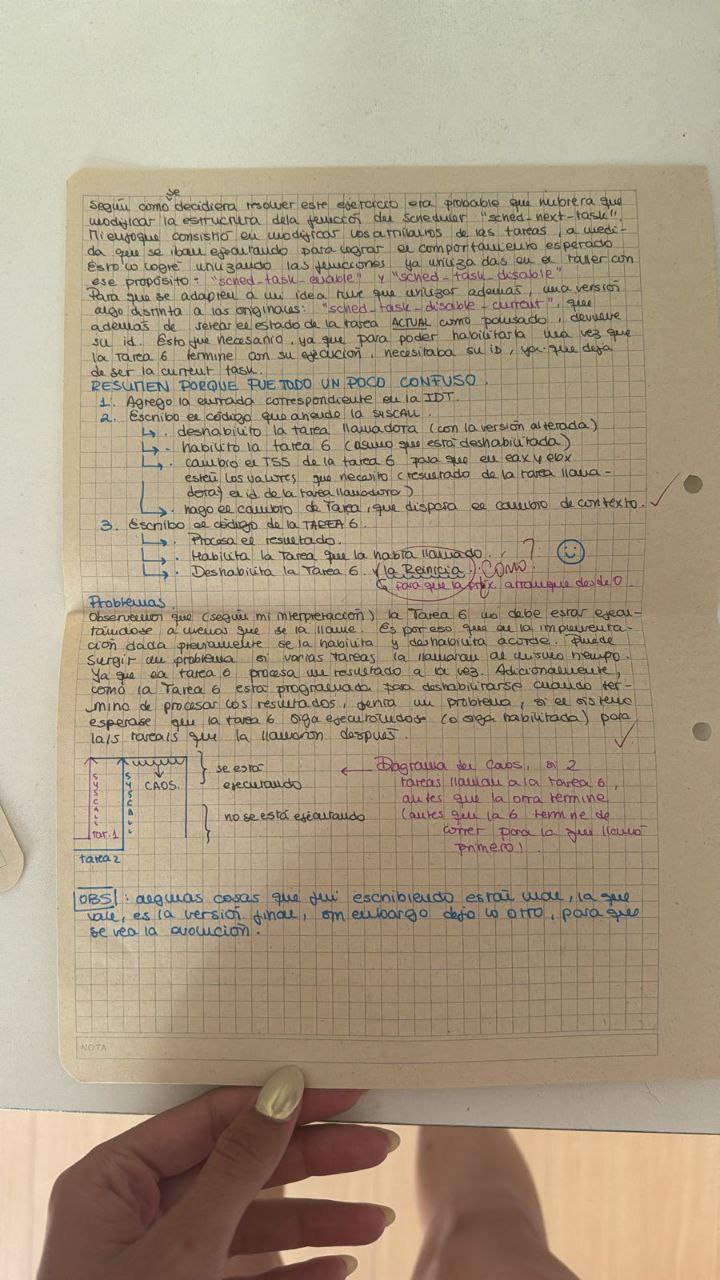 se
según como decidiera resolver este ejercicio era probable que hubiera que
modificar la estructura de la función del scheduler "sched_next_task".
Mi enfoque consistió en modificar los atributos de las tareas, a medi-
da que se iban ejecutando para lograr el comportamiento esperado
Esto lo logré utilizando las funciones ya utilizadas en el taller con
ese propósito: "sched_task_enable" y "sched_task_disable"
Para que se adapten a mi idea tuve que utilizar además, una versión
algo distinta a las originales: "sched_task_disable_current", que
además de setear el estado de la tarea ACTUAL como pausado, devuelve
su id. Esto fue necesario, ya que para poder habilitarla una vez que
la tarea 6 termine con su ejecución, necesitaba su ID, ya que deja
de ser la current task.
RESUMEN PORQUE FUE TODO UN POCO CONFUSO.
1. Agrego la entrada correspondiente en la IDT.
2. Escribo el código que atiende la SYSCALL.
↳ • deshabilito la tarea llamadora (con la versión alterada)
↳ • habilito la tarea 6 (asumo que está deshabilitada)
↳ • cambio el TSS de la tarea 6 para que en eax y ebx
estén los valores que necesito (resultado de la tarea llama-
dora y el id de la tarea llamadora)
↳ • hago el cambio de Tarea, que dispara el cambio de contexto.
3. Escribo el código de la TAREA 6.
↳ • Procesa el resultado.
↳ • Habilita la Tarea que la había llamado.
↳ • Deshabilita la Tarea 6 y la Reinicia. ¿Cómo?
↳ para que la próx. arranque desde 0.
Problemas.
Observemos que (según mi interpretación) la Tarea 6 no debe estar ejecu-
tándose a menos que se la llame. Es por eso que en la implementa-
ción dada previamente se la habilita y deshabilita acorde. Puede
surgir un problema si varias tareas la llamaran al mismo tiempo.
Ya que la tarea 6 procesa un resultado a la vez. Adicionalmente,
como la Tarea 6 está programada para deshabilitarse cuando ter-
mina de procesar los resultados, sería un problema, si el sistema
esperase que la tarea 6 siga ejecutándose (o siga habilitada) para
la/s tarea/s que la llamaron después.
SYSCALL
SYSCALL
CAOS.
tar.1
tarea 2
se está
ejecutando
no se está ejecutando
← Diagrama del caos, si 2
tareas llaman a la tarea 6,
antes que la otra termine
(antes que la 6 termine de
correr para la que llamó
primero).
OBS: algunas cosas que fui escribiendo están mal, la que
vale, es la versión final, sin embargo dejo lo otro, para que
se vea la evolución.
NOTA